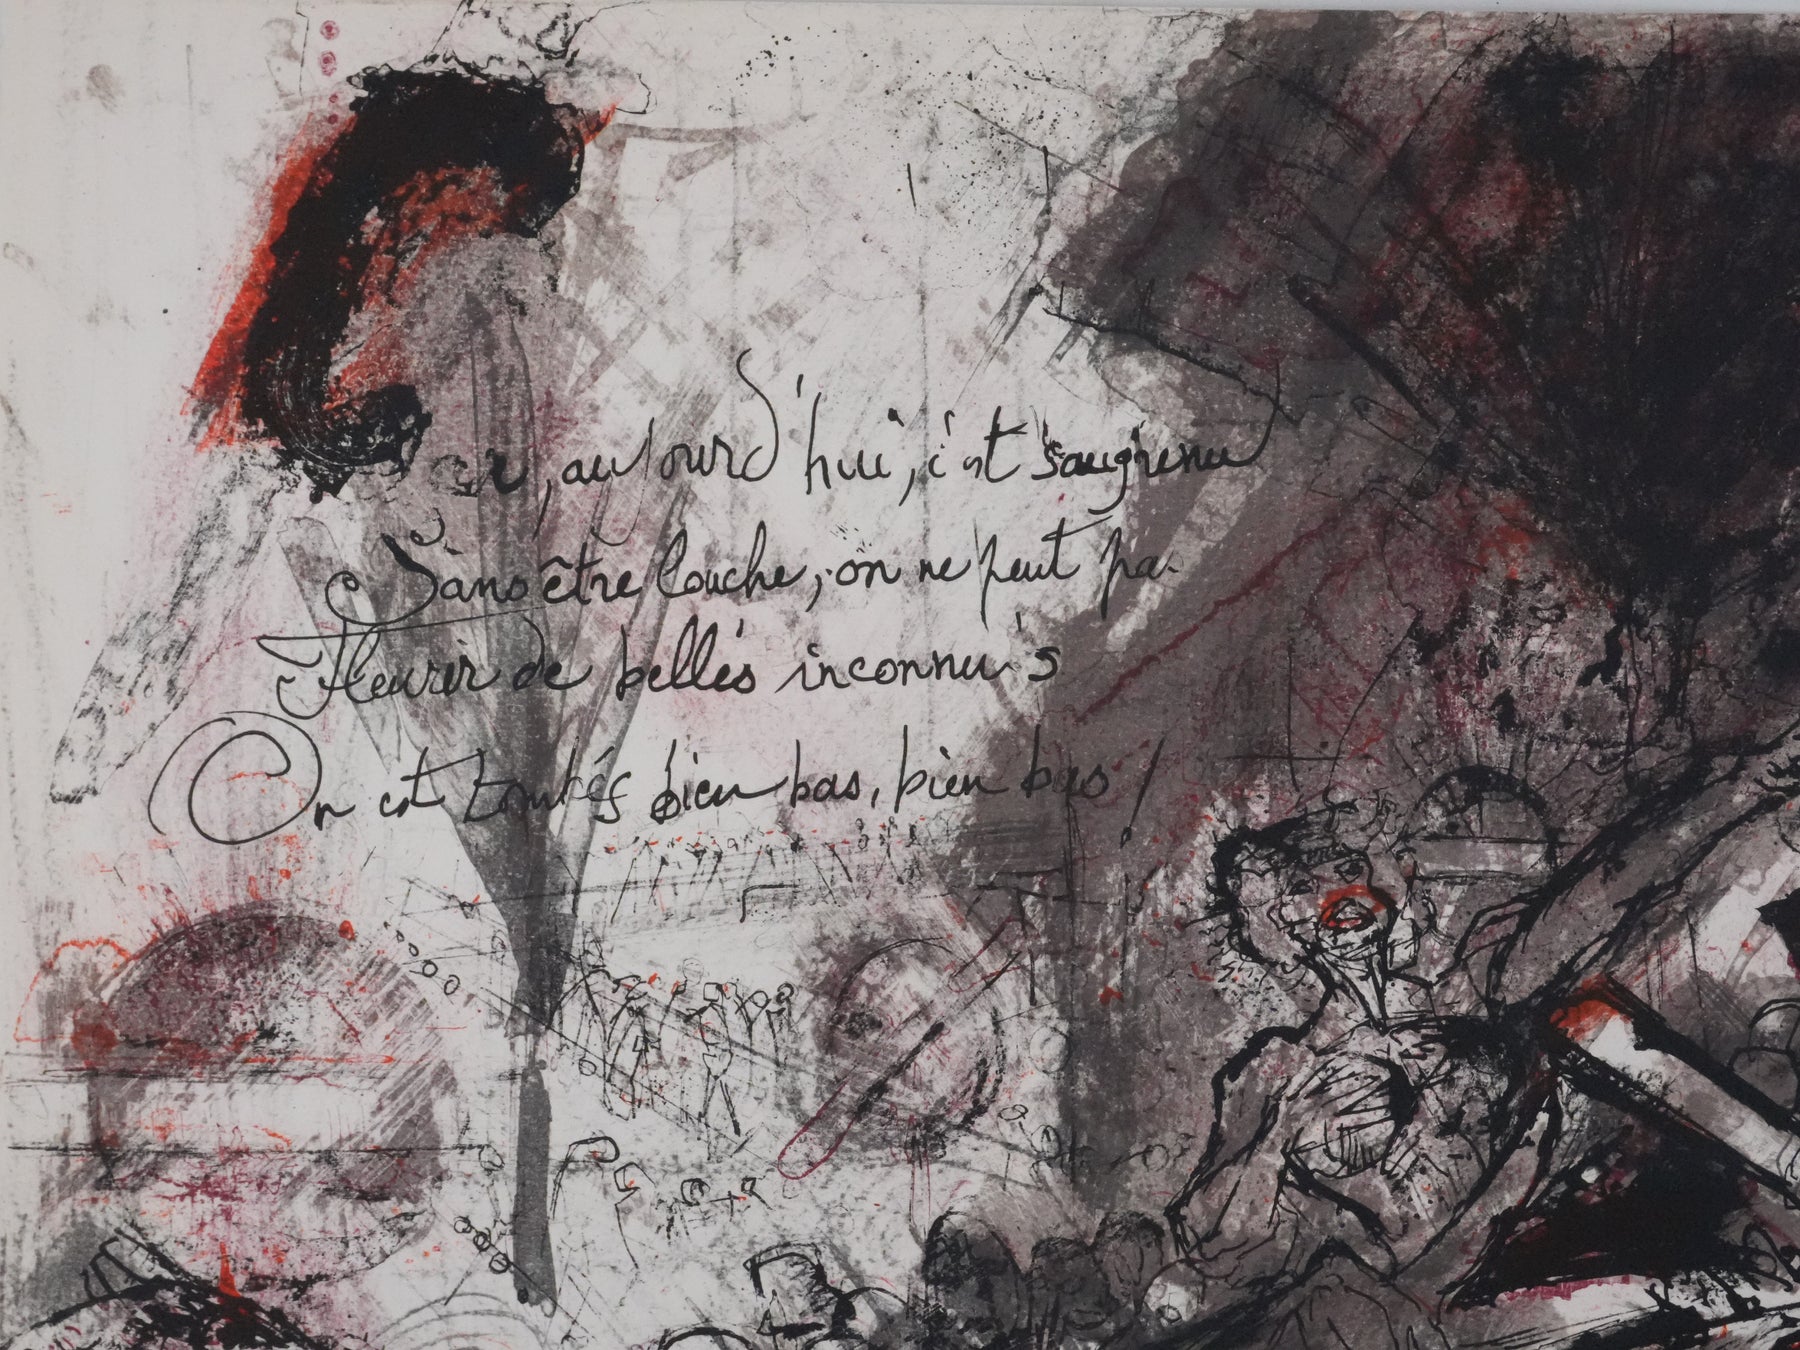 Car, aujourd'hui, c'est saugrenu
Sans être louche, on ne peut pas
Fleurir de belles inconnues
On est tombés bien bas, bien bas !